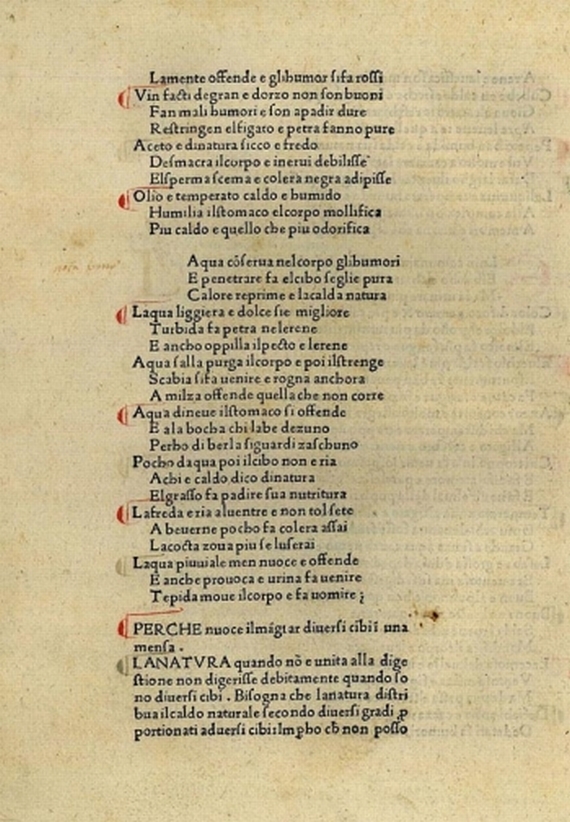 Lamente offende e glihumor sifa rossi
Vin facti degran e dorzo non son buoni
Fan mali humori e son apadir dure
Restringen elfigato e petra fanno pure
Aceto e dinatura sicco e fredo
Desmacra ilcorpo e inerui debilisse
Elsperma scema e colera negra adipisse
Olio e temperato caldo e humido
Humilia ilstomaco elcorpo mollifica
Piu caldo e quello che piu odorifica
Aqua cōserua nelcorpo glihumori
E penetrare fa elcibo seglie pura
Calore reprime e lacalda natura
Laqua liggiera e dolce sie migliore
Turbida fa petra nelerene
E ancho oppilla ilpecto e lerene
Aqua salla purga ilcorpo e poi ilstrenge
Scabia sifa uenire e rogna anchora
A milza offende quella che non corre
Aqua dineue ilstomaco si offende
E ala bocha chi labe dezuno
Perho di berla siguardi zaschuno
Pocho daqua poi ilcibo non e ria
Achi e caldo dico dinatura
Elgrasso fa padire sua nutritura
Lafreda e ria aluentre e non tol sete
A beuerne pocho fa colera assai
Lacocta zoua piu se luserai
Laqua piuuiale men nuoce e offende
E anche prouoca e urina fa uenire
Tepida moue ilcorpo e fa uomire ;
PERCHE nuoce ilmāgiar diuersi cibi ī una
mensa .
LANATVRA quando nō e unita alla dige
stione non digerisse debitamente quando so
no diuersi cibi . Bisogna che lanatura distri
bua ilcaldo naturale secondo diuersi gradi ꝓ
portionati aduersi cibi: Imꝑho cħ non posso